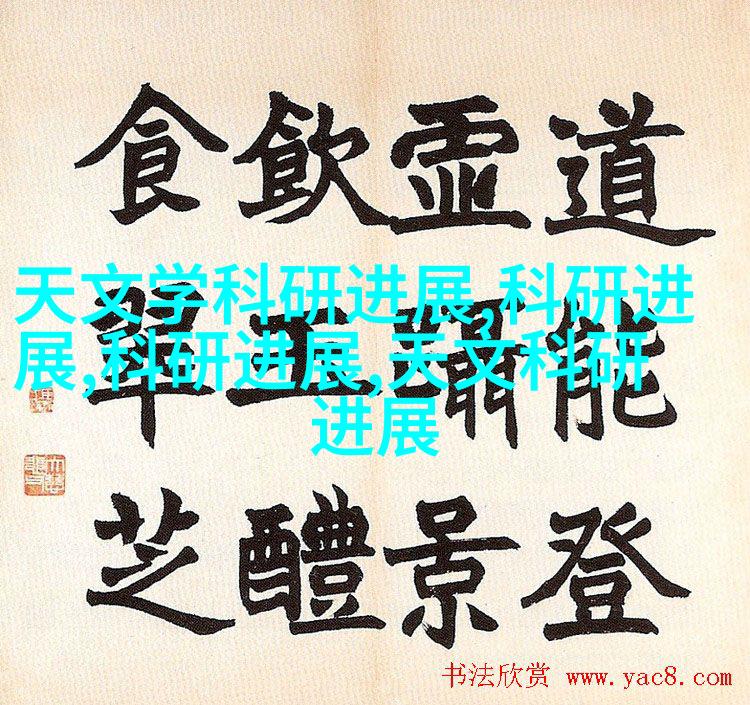 道能登
虛景
飲玉醴
食翠芝
天文学科研进展,科研进
展,科研进展,天文科研
进展
书法欣赏 www.yac8.com